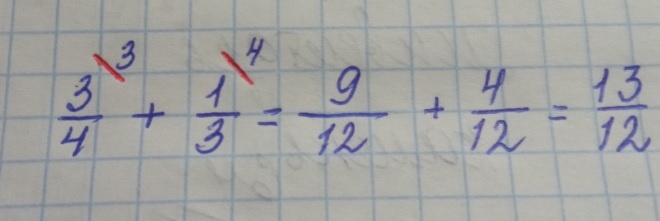 3/4 \3 + 1/3 \4 = 9/12 + 4/12 = 13/12